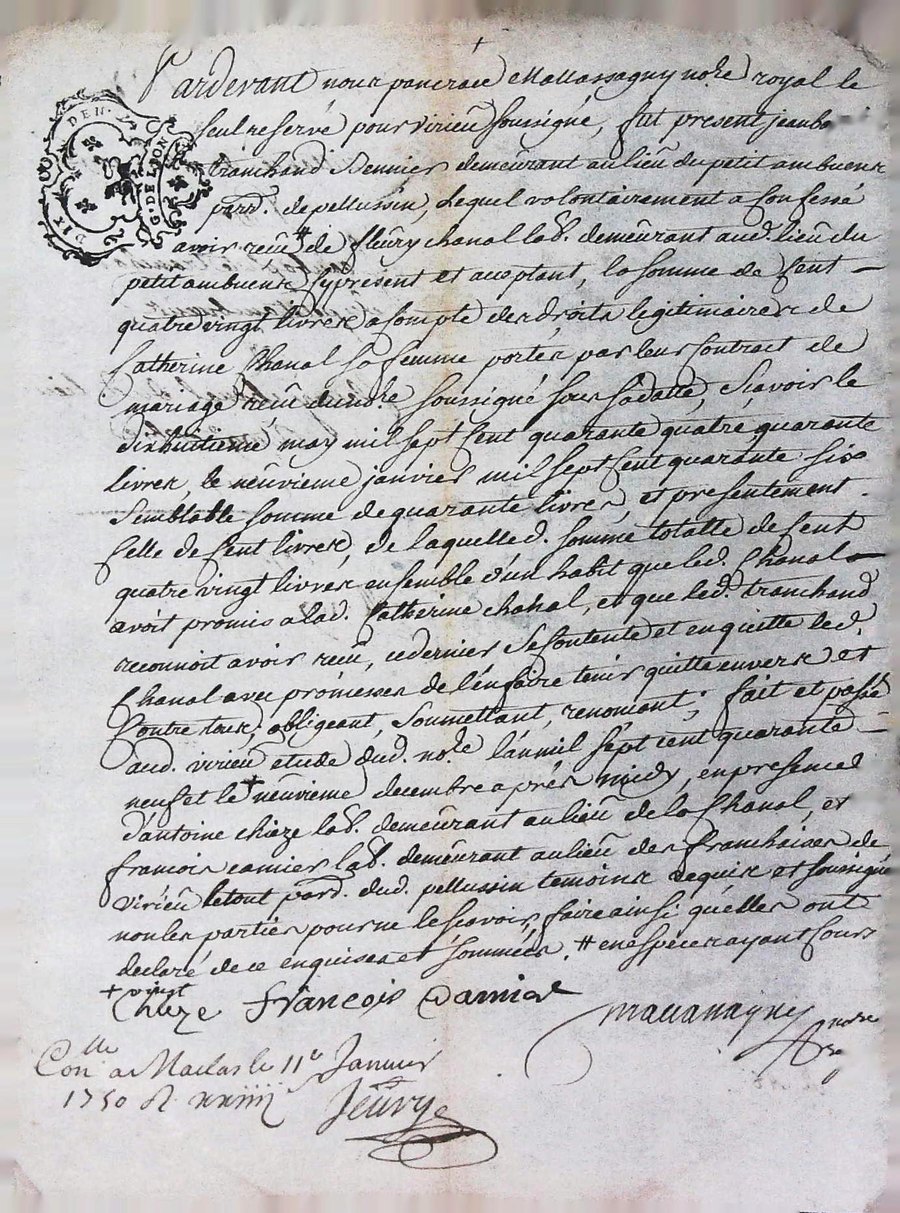 DIX DEN. G. DE LYON
Pardevant nous pancrace Mavassagny no.re royal le
seul reservé pour virieu soussigné, fut present jean b.
tranchand Sennier demeurant au lieu du petit ambuent
parr. de pellussin, Lequel volontairement a Confessé
avoir reçu # de fleury chanal lab. demeurant aud. lieu du
petit ambuent cy present et acceptant, la somme de Cent
quatre vingt livres a Compte des droits legitimaires de
Catherine Chanal sa femme portés par leur Contrat de
mariage reçu dud. no.re soussigné sous sa datte, Scavoir le
dixhuitieme may mil sept Cent quarante quatre quarante
livres, le neuvieme janvier mil sept Cent quarante six
Semblable somme de quarante livres, et presentement
Celle de Cent livres, de laquelle d. somme totalle de Cent
quatre vingt livres ensemble d'un habit que led. Chanal
avoit promis a lad. Catherine chanal, et que led. tranchand
reconnoit avoir reçu, ce dernier se Contente et en quitte led.
Chanal avec promesses de l'en faire tenir quitte envers et
Contre tous, obligeant, Soumettant, renonçant; fait et passé
aud. virieu etude dud. no.re l'an mil sept cent quarante
neuf et le + neuvieme decembre après midy, en presence
d'antoine chieze lab. demeurant au lieu de la Chanal, et
françois camier lab. demeurant au lieu des franchises de
virieu le tout parr. dud. pellussin temoins requis et soussignés
non les parties pour ne le scavoir faire ainsi qu'elles ont
declaré de ce enquises et sommées. # en especes ayant Cours
+ vingt
Chieze françois Camier
Mavassagny no.re
Con.lle a Maclas le 11e Janvier
1750 R. xxiiii s
Jeury